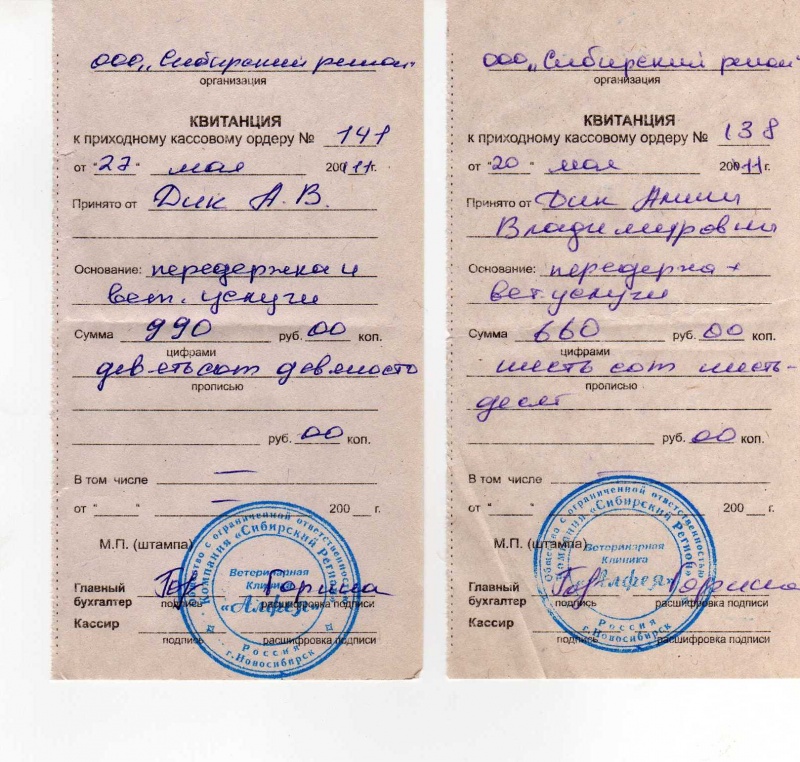 ООО „Сибирский регион"
организация
КВИТАНЦИЯ
к приходному кассовому ордеру № 141
от "27" мая 200 11 г.
Принято от Дик А. В.
Основание: передержка и
вет. услуги
Сумма 990 руб. 00 коп.
цифрами
девятьсот девяносто
прописью
руб. 00 коп.
В том числе —
от " — " 200 г.
М.П. (штампа)
Главный бухгалтер Гор Горина
подпись расшифровка подписи
Кассир
подпись расшифровка подписи
Общество с ограниченной ответственностью
Компания «Сибирский Регион»
Ветеринарная
Клиника
«Алфея»
Россия
г.Новосибирск
ООО „Сибирский регион"
организация
КВИТАНЦИЯ
к приходному кассовому ордеру № 138
от "20" мая 200 11 г.
Принято от Дик Анны
Владимировны
Основание: передержка +
вет. услуги
Сумма 660 руб. 00 коп.
цифрами
шесть сот шесть-
прописью
десят
руб. 00 коп.
В том числе —
от " " 200 г.
М.П. (штампа)
Главный бухгалтер Гор Горина
подпись расшифровка подписи
Кассир
подпись расшифровка подписи
Общество с ограниченной ответственностью
Компания «Сибирский Регион»
Ветеринарная
Клиника
«Алфея»
Россия
г.Новосибирск